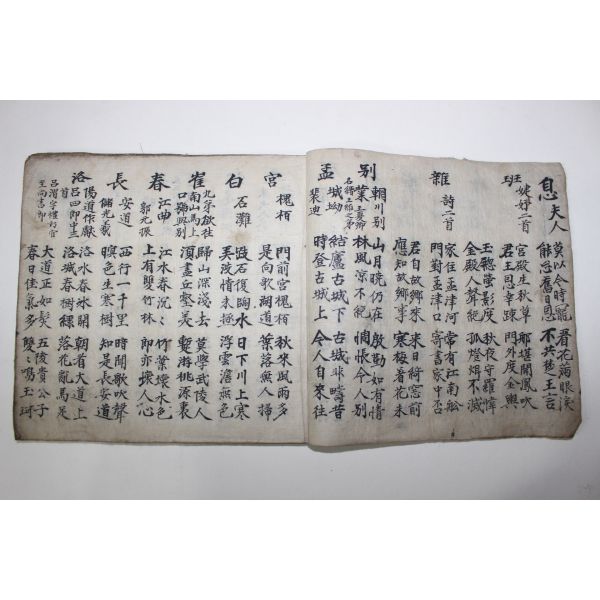 息夫人
莫以今時寵 看花滿眼淚
能忘舊日恩 不共楚王言
班婕妤二首
宮殿生秋草 那堪聞鳳吹
君王恩幸疎 門外度金輿
玉窓螢影度 秋夜守羅幃
金殿人聲絶 孤燈耿不滅
雜詩二首
家住孟津河 常有江南船
門對孟津口 寄書家中否
君自故鄉來 來日綺窓前
應知故鄉事 寒梅着花未
輞川別
別業
名縉王維之弟
山月曉仍在 殷勤如有情
林風凉不絶 惆悵令人別
孟城坳
裴迪
結廬古城下 古城非疇昔
時登古城上 今人自來往
宮槐栢
門前宮槐栢 秋來風雨多
是向歌湖道 葉落無人掃
白石灘
跂石復臨水 日下川上寒
美波情未極 浮雲澹無色
崔九欲往
南山馬上
口號與別
歸山深淺去 莫學武陵人
須盡丘壑美 暫游桃源裏
春江曲
郭元振
江水春沉〻 竹葉壞水色
上有雙竹林 即亦壞人心
長安道
儲光羲
西行一千里 時聞歌吹聲
暝色生寒樹 知是長安道
洛陽道作獻
呂四郎中
首
呂渭字禮初官
至尚書郎
洛水春氷開 朝看大道上
洛城春樹綠 落花亂馬足
大道正如髮 五陵貴公子
春日佳氣多 雙〻鳴玉珂